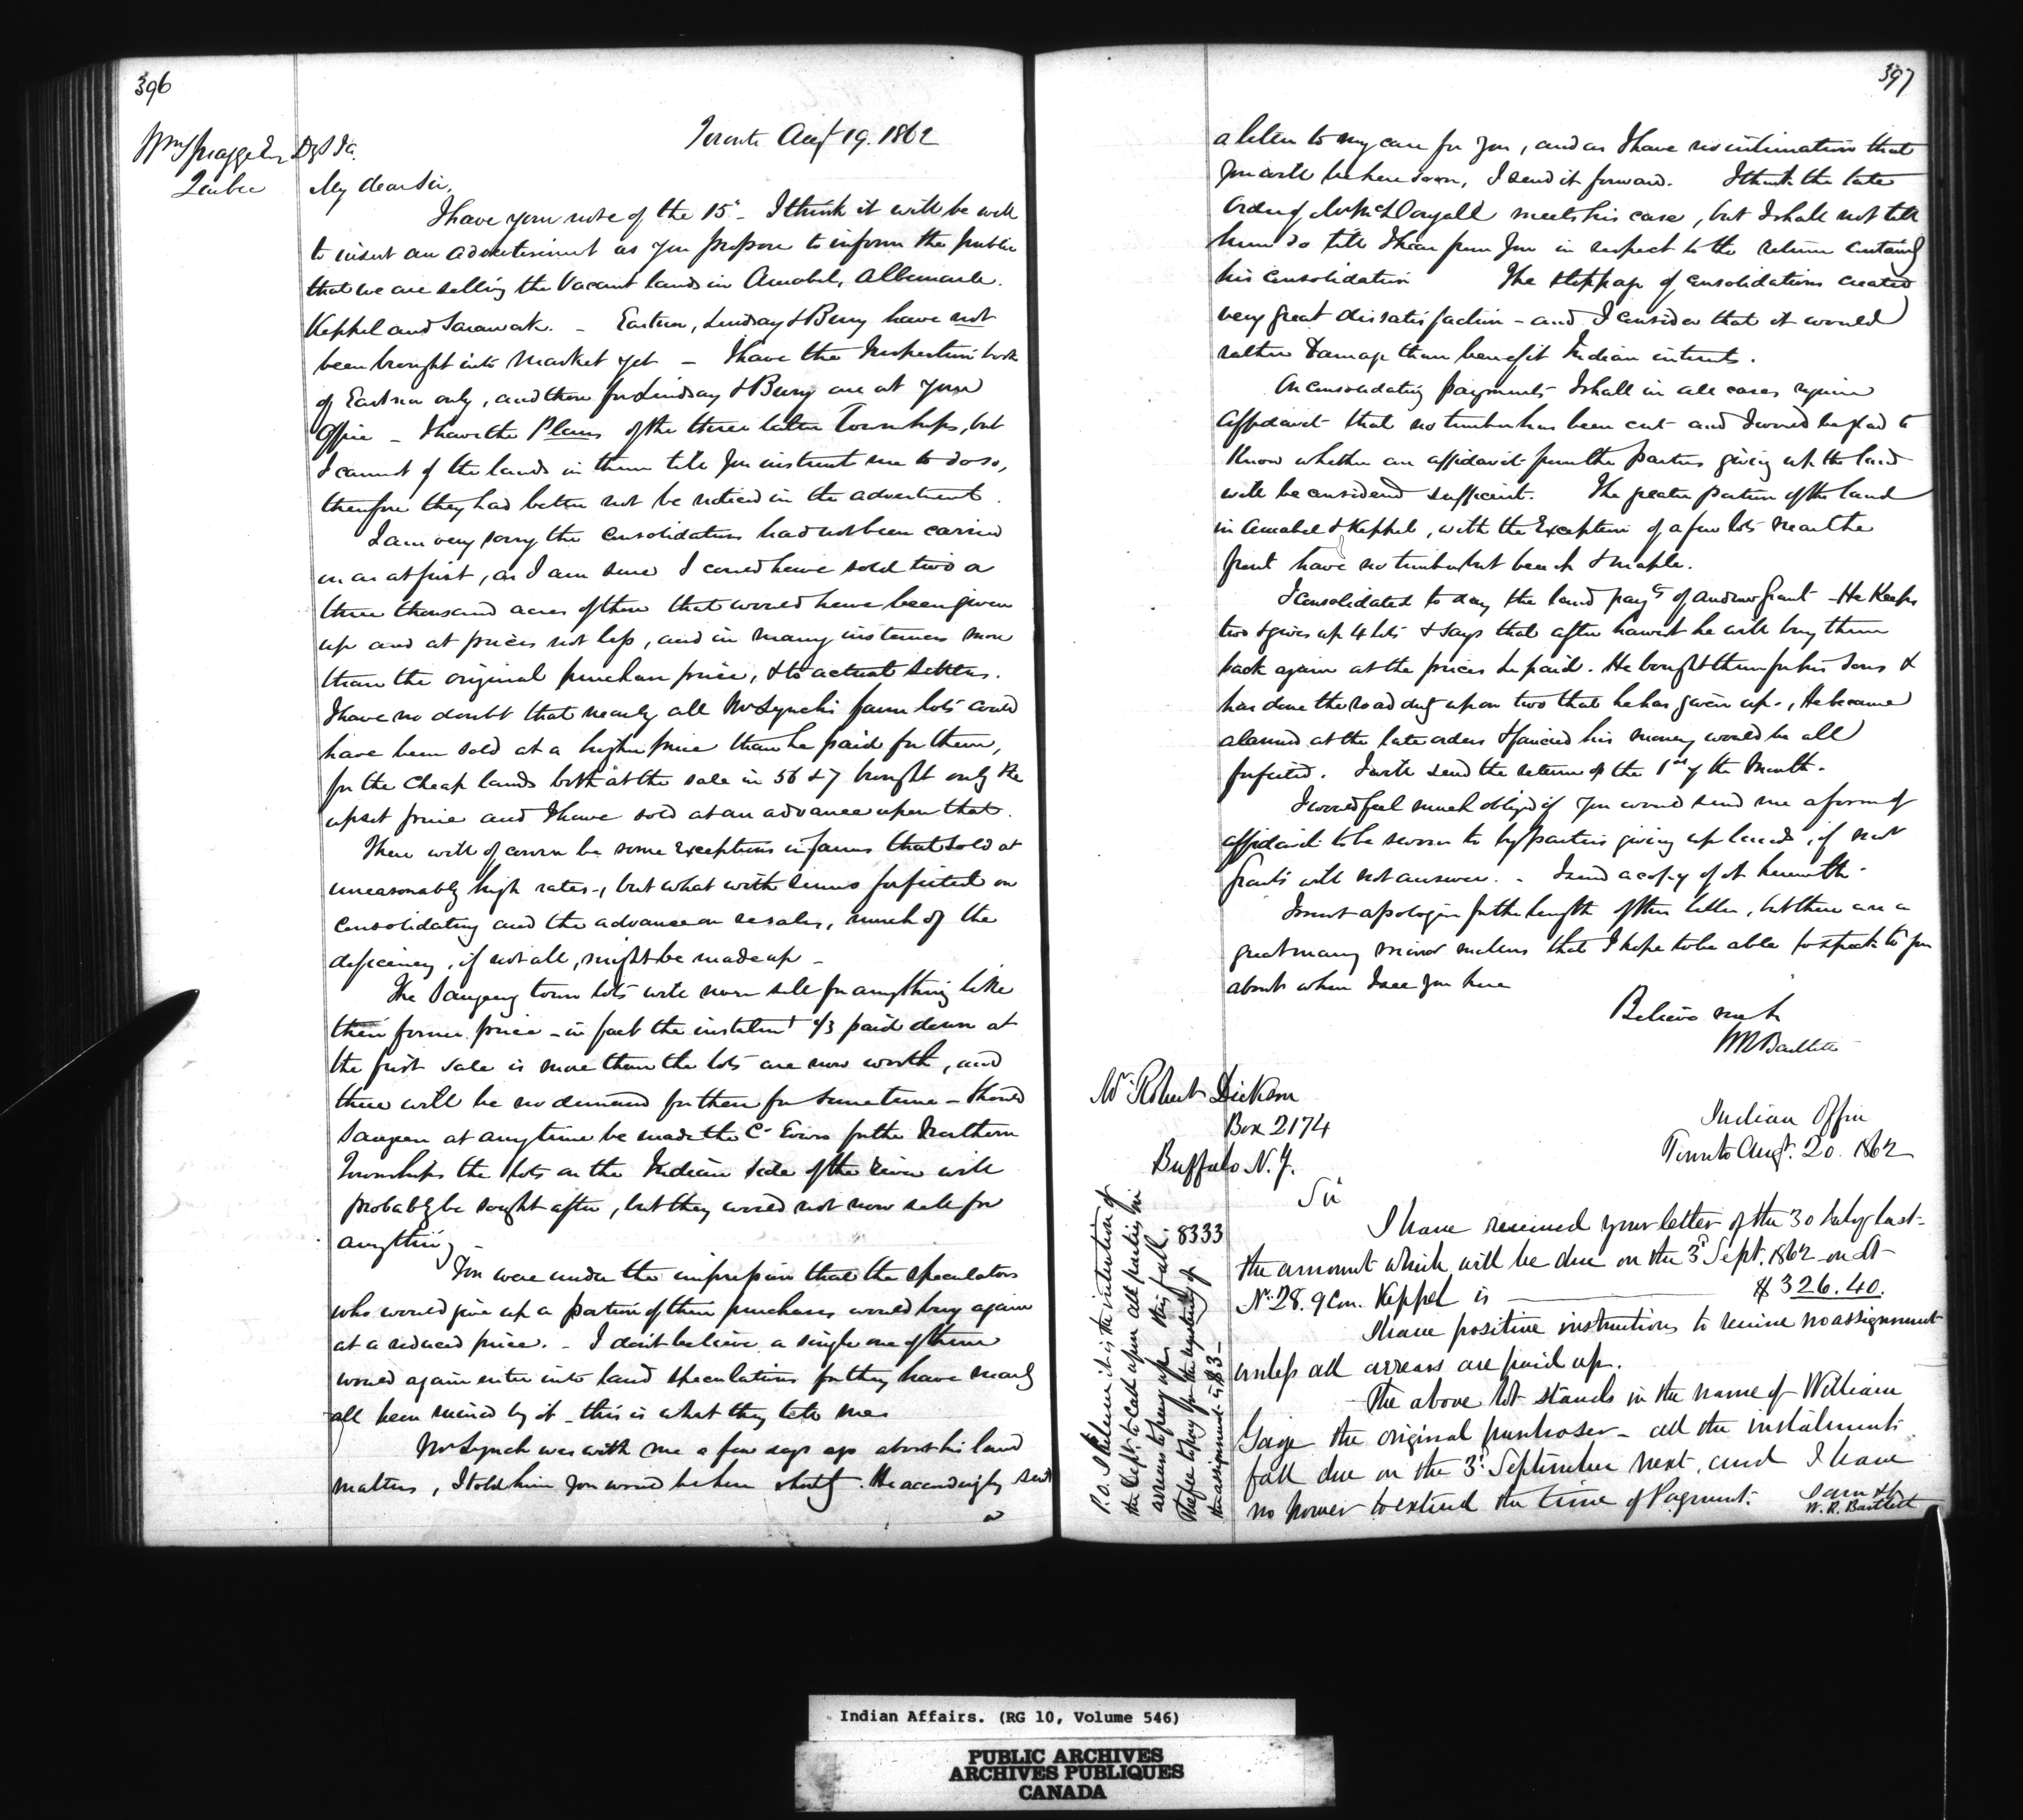 396
Wm Spragge Esqr D.S.I.A.
Quebec
Toronto Augt 19. 1862
My dear Sir,
I have your note of the 15th - I think it will be well
to insert an advertisement as you propose to inform the public
that we are selling the Vacant lands in Amabel, Albemarle.
Keppel and Sarawak. - Eastnor, Lindsay & Bury have not
been brought into market yet - I have the Inspection book
of Eastnor only, and those for Lindsay & Bury are at your
Office - I have the Plans of the three latter Townships, but
I cannot of the lands in them till you instruct me to do so,
therefore they had better not be noticed in the advertment.
I am very sorry the consolidations had not been carried
on as at first, as I am sure I could have sold two or
three thousand acres of those that would have been given
up and at prices not less, and in many instances more
than the original purchase price, & to actual settlers.
I have no doubt that nearly all Mr Lynch's farm lots could
have been sold at a higher price than he paid for them,
for the Cheap lands both at the sale in 56 & 7 brought only the
upset price and I have sold at an advance upon that.
There will of course be some exceptions in farms that sold at
unreasonably high rates -, but what with sums forfeited on
Consolidating and the advance on resales, much of the
deficiency, if not all, might be made up -
The Saugeeng town lots will never sell for anything like
their former price - in fact the instalmt 1/3 paid down at
the first sale is more than the lots are now worth, and
there will be no demand for them for some time - Should
Saugeen at any time be made the Co Town for the Northern
Townships the lots on the Indian side of the river will
probably be sought after, but they would not now sell for
anything -
You were under the impression that the speculators
who would give up a portion of their purchases would buy again
at a reduced price. - I don't believe a single one of them
would again enter into land speculations for they have nearly
all been ruined by it - this is what they tell me
Mr Lynch was with me a few days ago about his land
matters, I told him you would be here shortly. He accordingly sends
a
397
a letter to my care for you, and as I have no intimation that
you will be here soon, I send it forward. I think the late
Order of Mr McDougall meets his case, but I shall not tell
him so till I hear from you in respect to the return containg
his consolidation The stoppage of consolidations created
very great dissatisfaction - and I consider that it would
rather damage than benefit Indian interests.
On Consolidating payments I shall in all cases require
Affidavit that no timber has been cut and I would be glad to
Know whether an affidavit from the parties giving up the land
will be considered sufficient. The greater portion of the land
in Amabel & Keppel, with the Exception of a few lots near the
front have no timber but beech & maple.
I Consolidated to day the land payts of Andrew Grant - He Keeps
two & gives up 4 lots & says that after harvest he will buy them
back again at the prices he paid. He bought them for his sons &
has done the road duty upon two that he has given up -, He became
alarmed at the late orders & fancied his money would be all
forfeited. I will send the return on the 1st of the Month -
I would feel much obliged if you would send me a form of
affidavit to be sworn to by parties giving up land, if not
Grant's will not answer. - I send a copy of it herewith -
I must apologise for the length of this letter, but there are a
great many minor matters that I hope to be able to speak to you
about when I see you here
Believe me &c
W R Bartlett
Mr Robert Dickson
Box 2174
Buffalo N.Y.
Indian Office
Toronto Augt. 20. 1862
Sir
8333
I have received your letter of the 30 July last -
the amount which will be due on the 3d Sept. 1862 on Lt
No. 28. 9 Con. Keppel is $326.40.
I have positive instructions to receive no assignment
unless all arrears are paid up.
The above lot stands in the name of William
Gage the original purchaser - all the instalments
fall due on the 3d September next, and I have
no power to extend the time of Payment.
I am &c
W. R. Bartlett
P.S. I believe it is the intention of
the Dept. to call upon all parties in
arrears to pay up this fall.
The fee to pay for the registering of
the assignment is $3 -
Indian Affairs. (RG 10, Volume 546)
PUBLIC ARCHIVES
ARCHIVES PUBLIQUES
CANADA